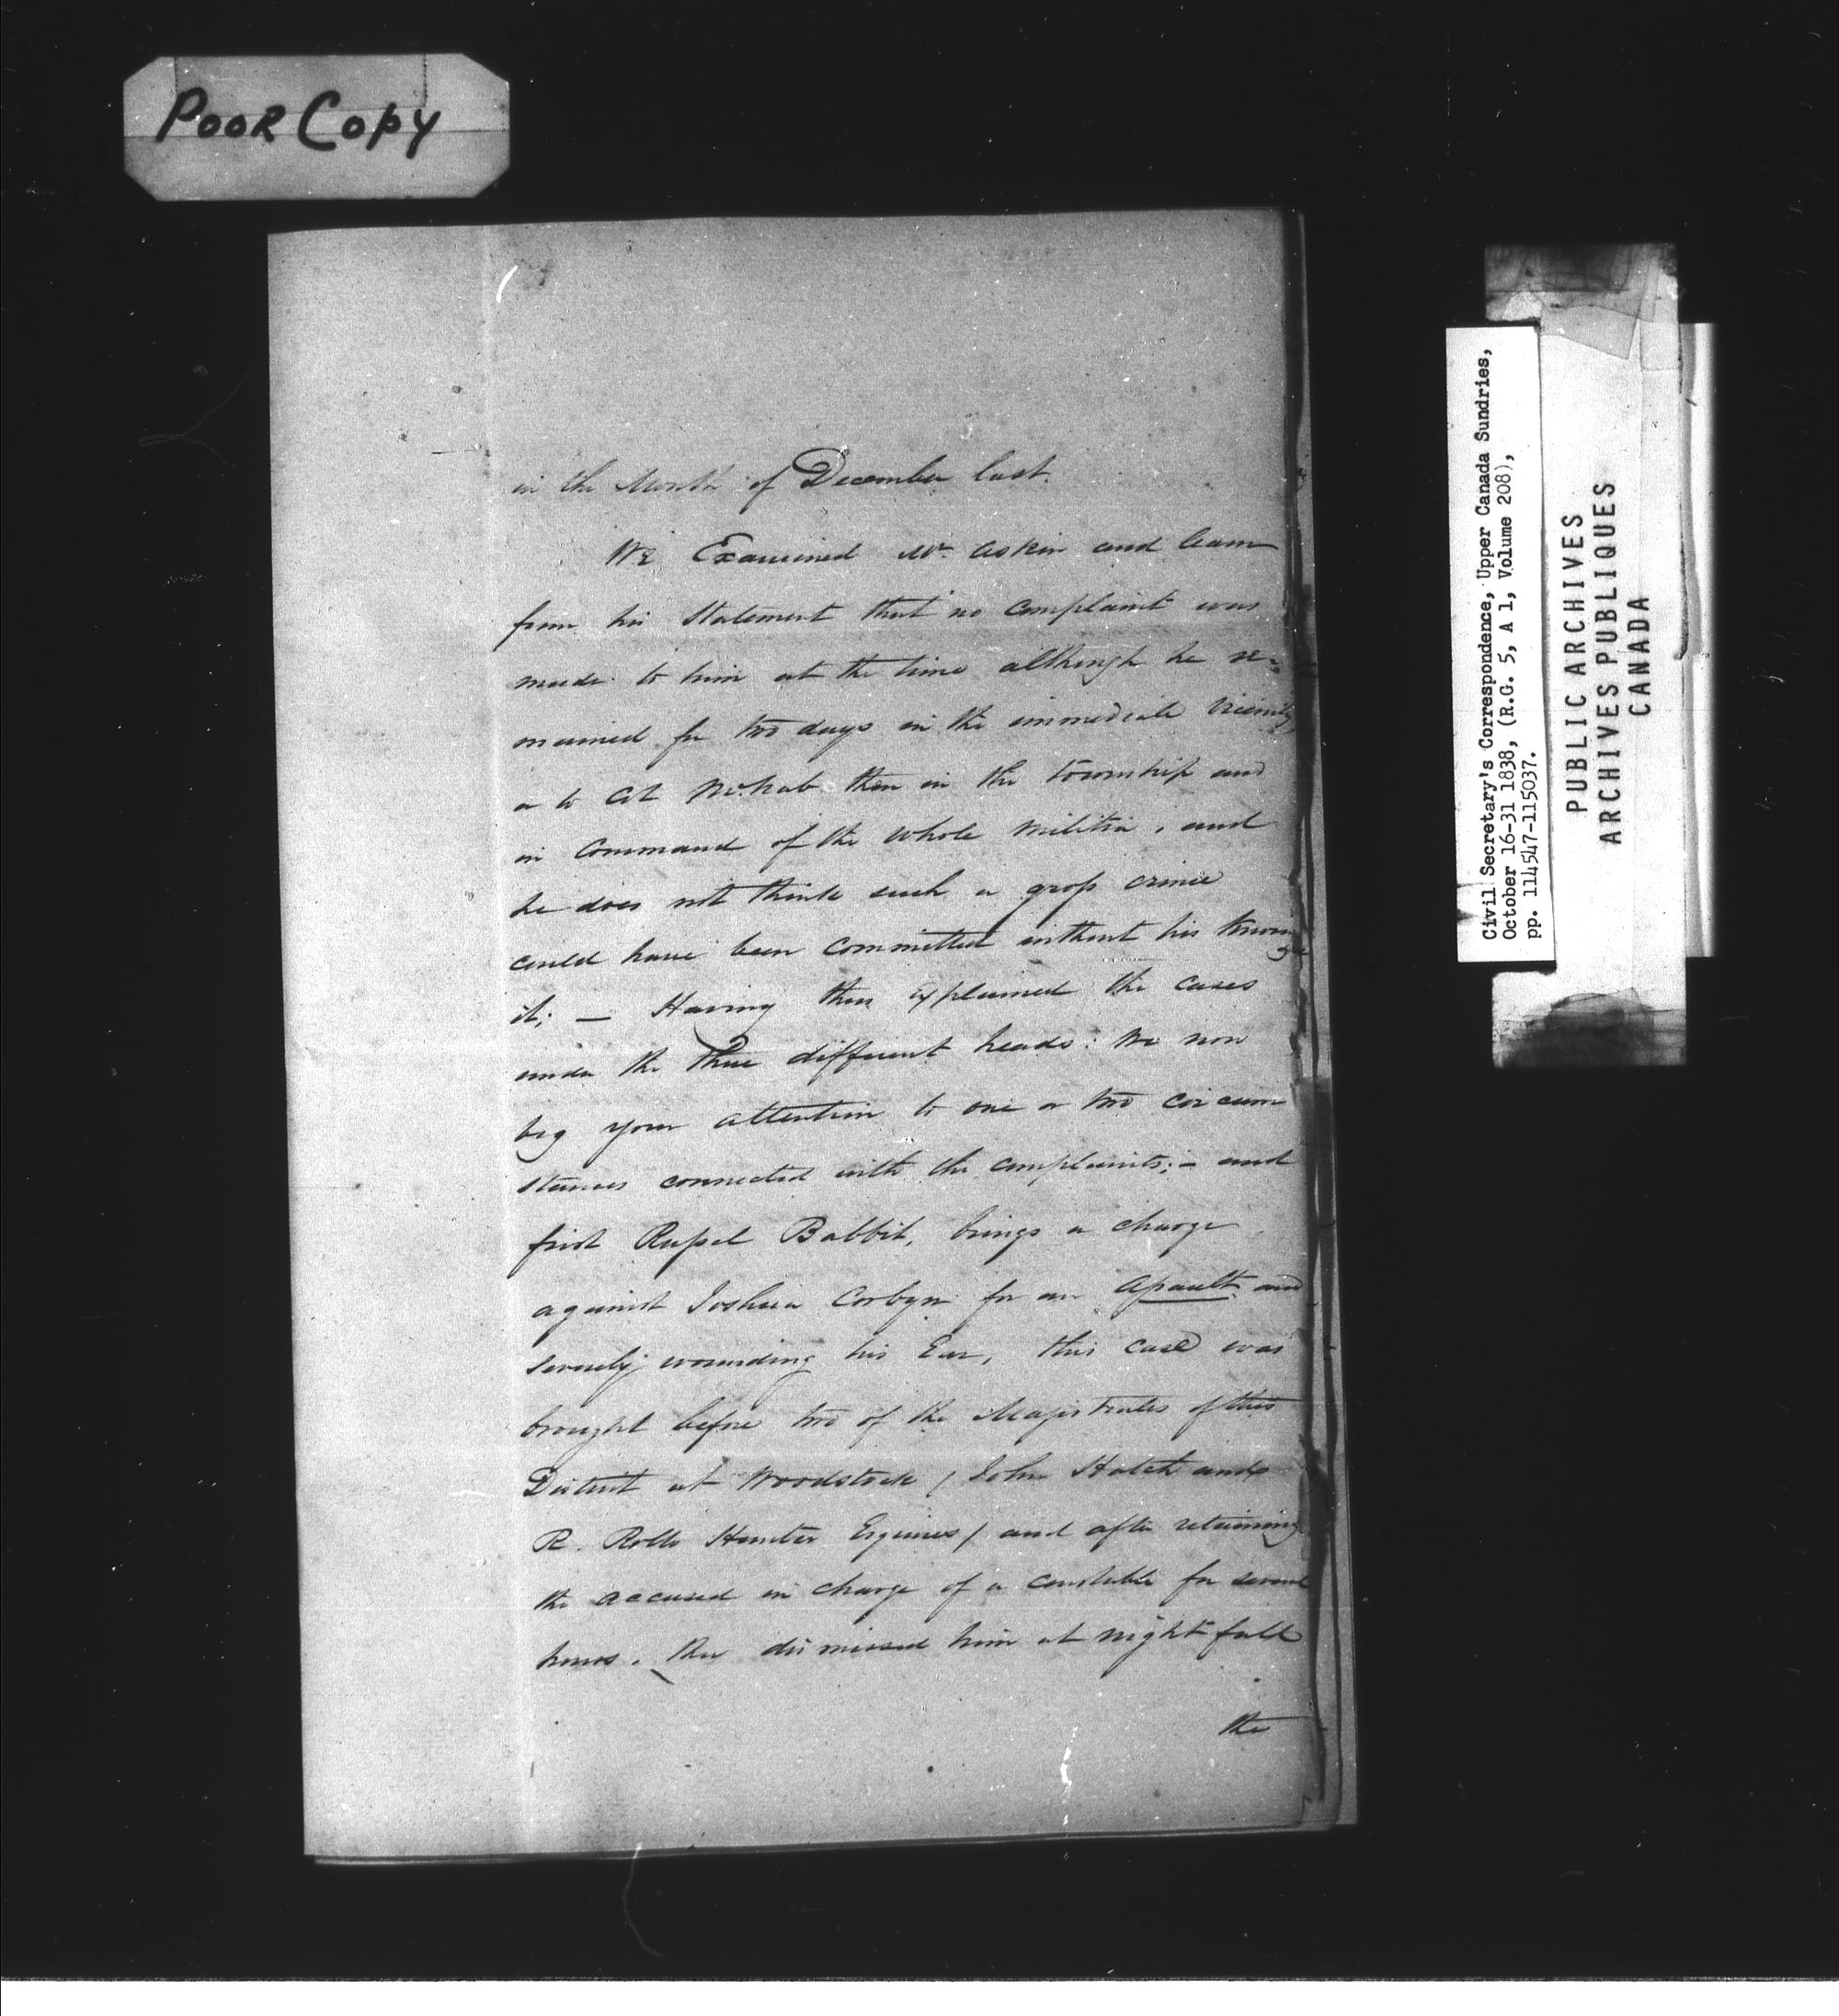 POOR COPY
in the Month of December last.
We Examined Mr. Askin and learn
from his Statement that no complaint was
made to him at the time although he re-
mained for two days in the immediate vicinity
or to Col McNab then in the township and
in Command of the whole militia, and
he does not think such a gross crime
could have been committed without his knowing
it; — Having thus explained the cases
under the three different heads: We now
beg your attention to one or two circum
stances connected with the complaints; - and
first Russel Babbit, brings a charge
against Joshua Corbyn for an Assault and
severely wounding his Ear, this case was
brought before two of the Magistrates of this
District at Woodstock / John Hatch and
R. Rollo Hunter Esquires / and after retaining
the accused in charge of a constable for several
hours. they dismissed him at nightfall
the
Civil Secretary's Correspondence, Upper Canada Sundries,
October 16-31 1838, (R.G. 5, A 1, Volume 208),
pp. 114547-115037.
PUBLIC ARCHIVES
ARCHIVES PUBLIQUES
CANADA